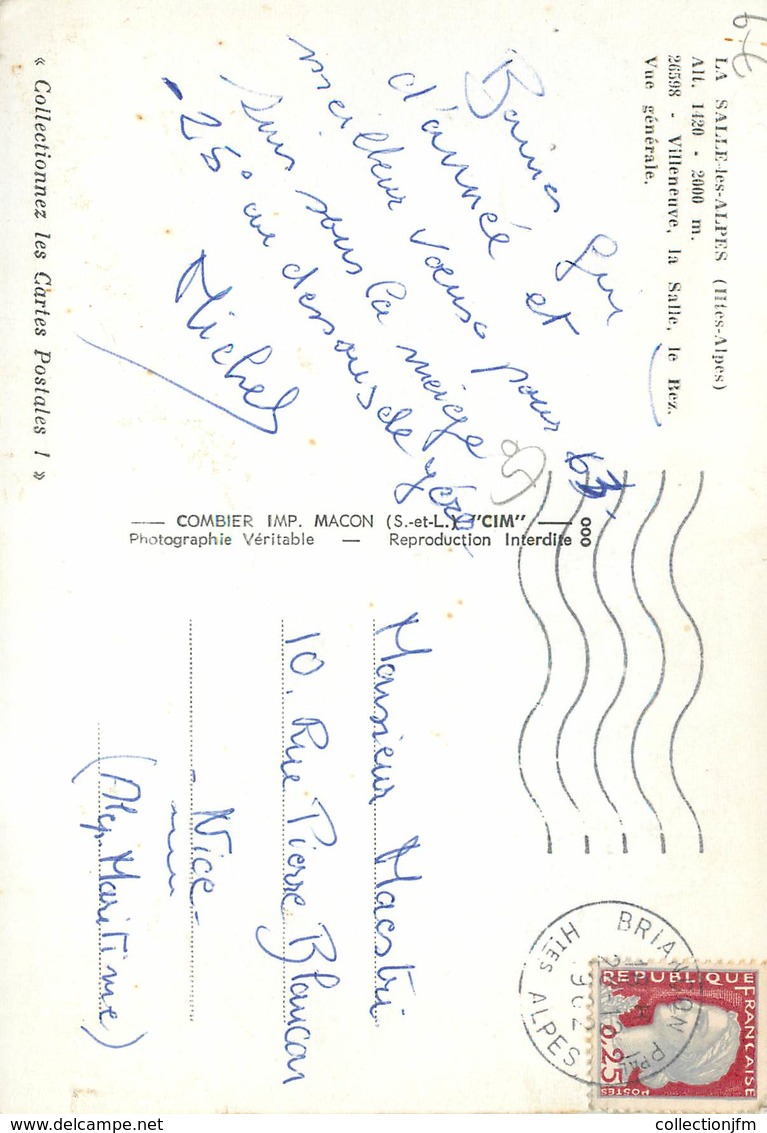 LA SALLE-les-ALPES (Htes-Alpes)
Alt. 1420 - 2000 m.
26598 - Villeneuve, la Salle, le Bez.
Vue générale.
Bonnes fin
d'année et
meilleur vœux pour 63.
suis sous la neige
- 25° au dessous de zéro
Michel
« Collectionnez les Cartes Postales ! »
COMBIER IMP. MACON (S.-et-L.) "CIM"
Photographie Véritable — Reproduction Interdite
Monsieur Maestri
10. Rue Pierre Blancar
Nice -
(Alp. Maritime)
BRIANÇON PPAL
1962
HTES ALPES
REPUBLIQUE FRANCAISE
0,25
POSTES
collectionjfm